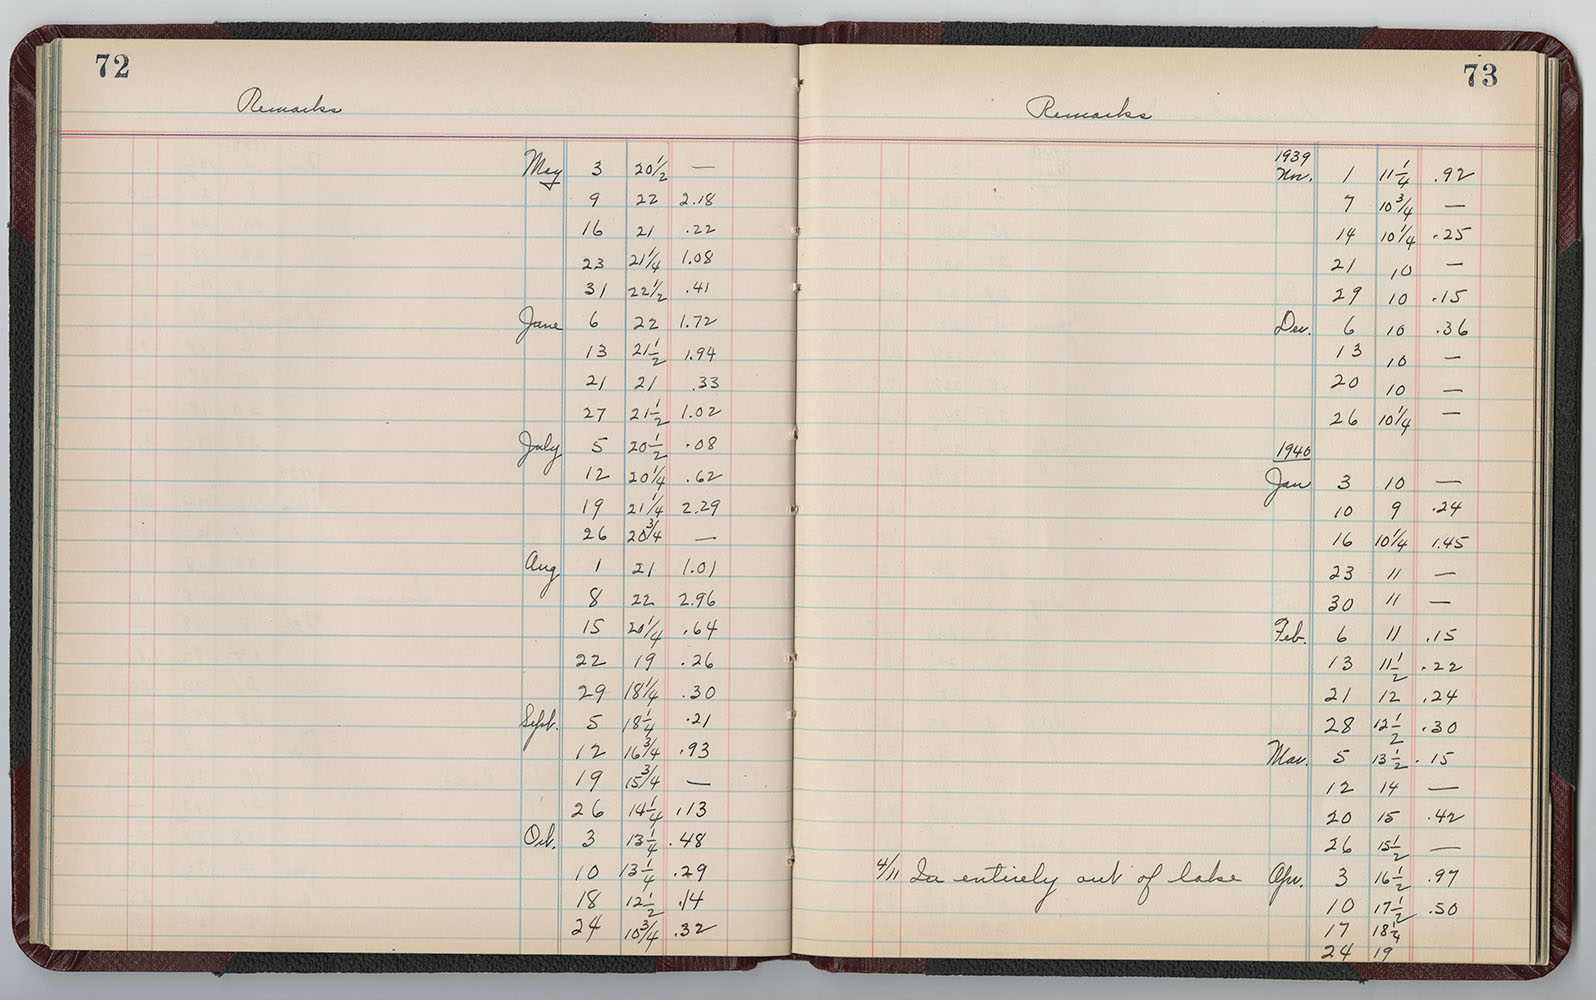 72
Remarks
May 3 20 1/2 —
9 22 2.18
16 21 .22
23 21 1/4 1.08
31 22 1/2 .41
June 6 22 1.72
13 21 1/2 1.94
21 21 .33
27 21 1/2 1.02
July 5 20 1/2 .08
12 20 1/4 .62
19 21 1/4 2.29
26 20 3/4 —
Aug 1 21 1.01
8 22 2.96
15 20 1/4 .64
22 19 .26
29 18 1/4 .30
Sept. 5 18 1/4 .21
12 16 3/4 .93
19 15 3/4 —
26 14 1/4 .13
Oct. 3 13 1/4 .48
10 13 1/4 .29
18 12 1/2 .14
24 10 3/4 .32
73
Remarks
1939
Nov. 1 11 1/4 .92
7 10 3/4 —
14 10 1/4 .25
21 10 —
29 10 .15
Dec. 6 10 .36
13 10 —
20 10 —
26 10 1/4 —
1940
Jan 3 10 —
10 9 .24
16 10 1/4 1.45
23 11 —
30 11 —
Feb. 6 11 .15
13 11 1/2 .22
21 12 .24
28 12 1/2 .30
Mar. 5 13 1/2 .15
12 14 —
20 15 .42
26 15 1/2 —
4/11 Ice entirely out of lake Apr. 3 16 1/2 .97
10 17 1/2 .50
17 18 1/4
24 19